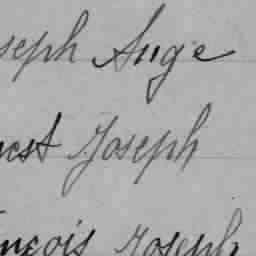 seph Auge
nest Joseph
ançois Joseph